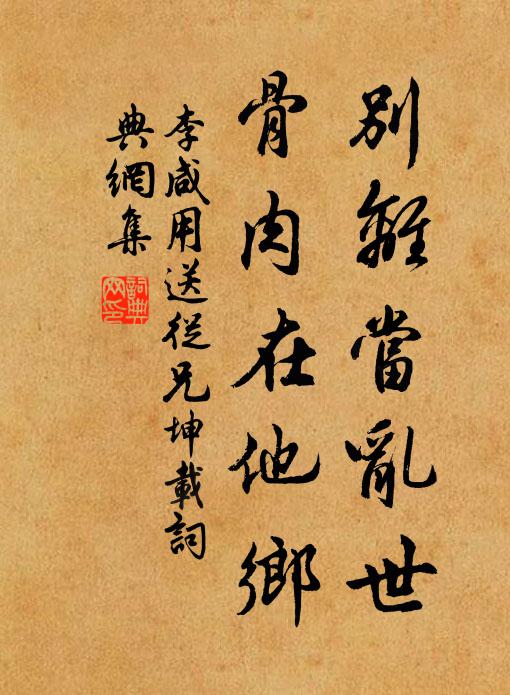 別離當亂世
骨肉在他鄉
李咸用送從兄坤載詞
典網集
詞典
网印